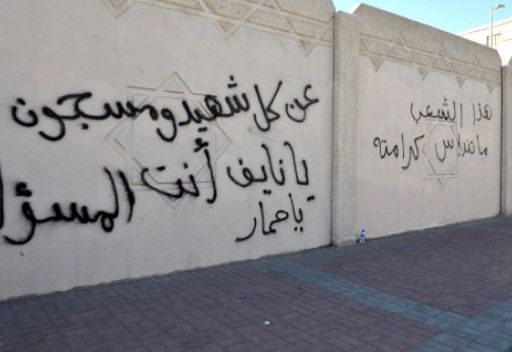 هذا الشعب
ما تنداس كرامته
عن كل شهيد ومسجون
يا نايف أنت المسؤل
يا حمار